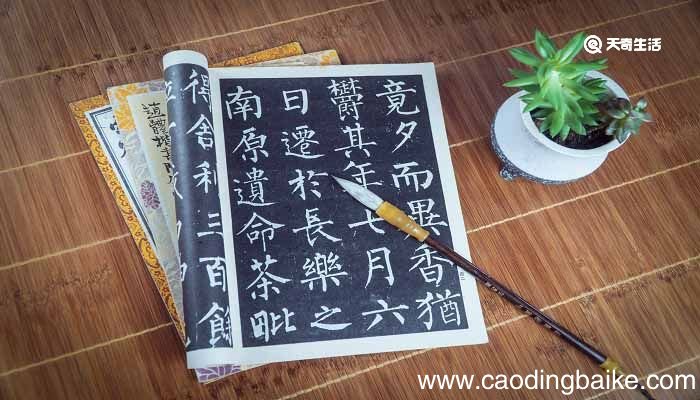 天奇生活
竟夕而異香猶
鬱其年七月六
日遷於長樂之
南原遺命茶毗
得舍利三百餘
www.caodingbaike.com